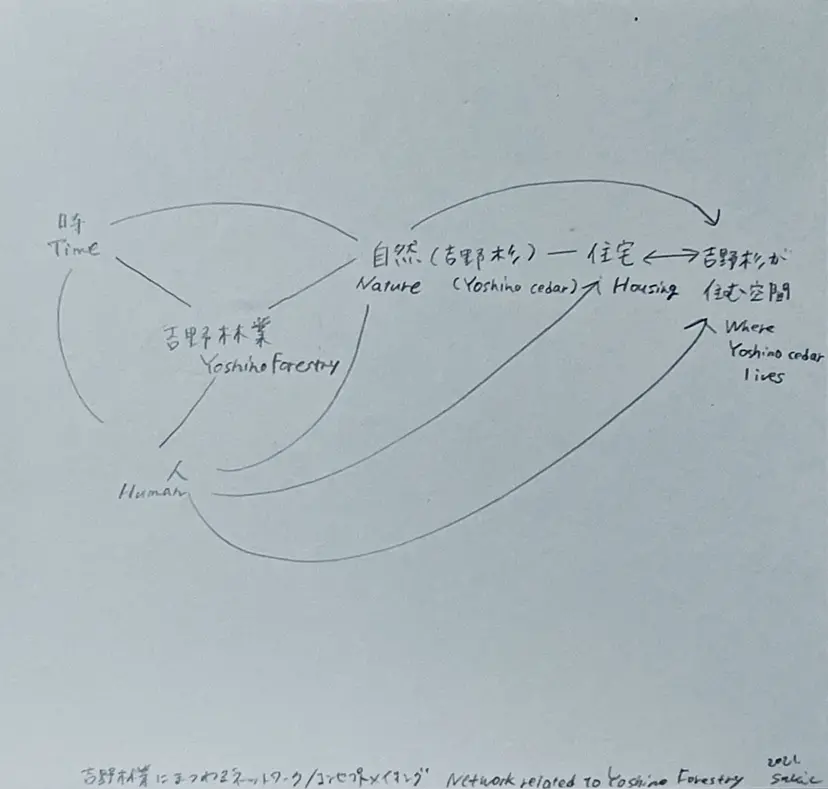 時
Time
自然(吉野杉) — 住宅 ↔ 吉野杉が
Nature (Yoshino cedar) Housing 住む空間
Where
Yoshino cedar
lives
吉野林業
Yoshino Forestry
人
Human
吉野林業にまつわるネットワーク/コンセプトメイキング Network related to Yoshino Forestry